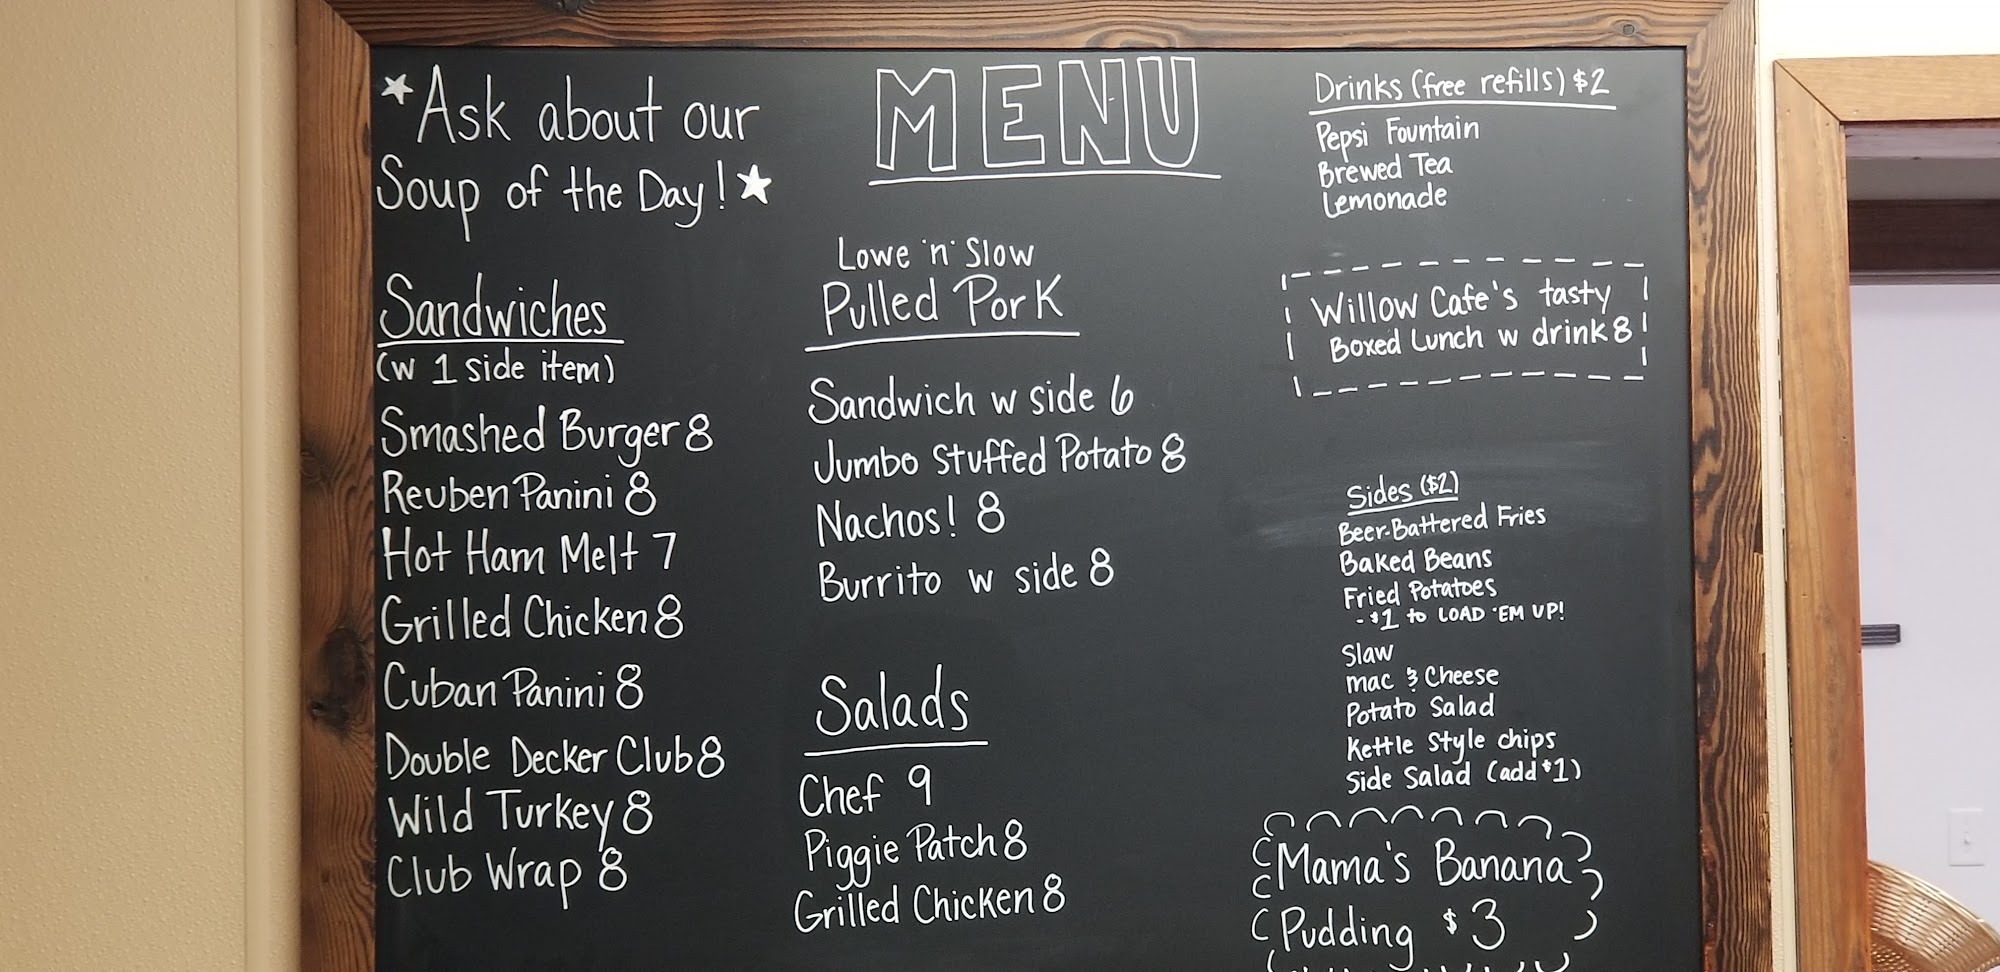 *Ask about our
Soup of the Day!★
Sandwiches
(w 1 side item)
Smashed Burger 8
Reuben Panini 8
Hot Ham Melt 7
Grilled Chicken 8
Cuban Panini 8
Double Decker Club 8
Wild Turkey 8
Club Wrap 8
MENU
Lowe 'n' Slow
Pulled Pork
Sandwich w side 6
Jumbo Stuffed Potato 8
Nachos! 8
Burrito w side 8
Salads
Chef 9
Piggie Patch 8
Grilled Chicken 8
Drinks (free refills) $2
Pepsi Fountain
Brewed Tea
Lemonade
Willow Cafe's tasty
Boxed Lunch w drink 8
Sides ($2)
Beer-Battered Fries
Baked Beans
Fried Potatoes
- $1 to LOAD 'EM UP!
Slaw
mac & Cheese
Potato Salad
Kettle Style chips
Side Salad (add $1)
Mama's Banana
Pudding $3